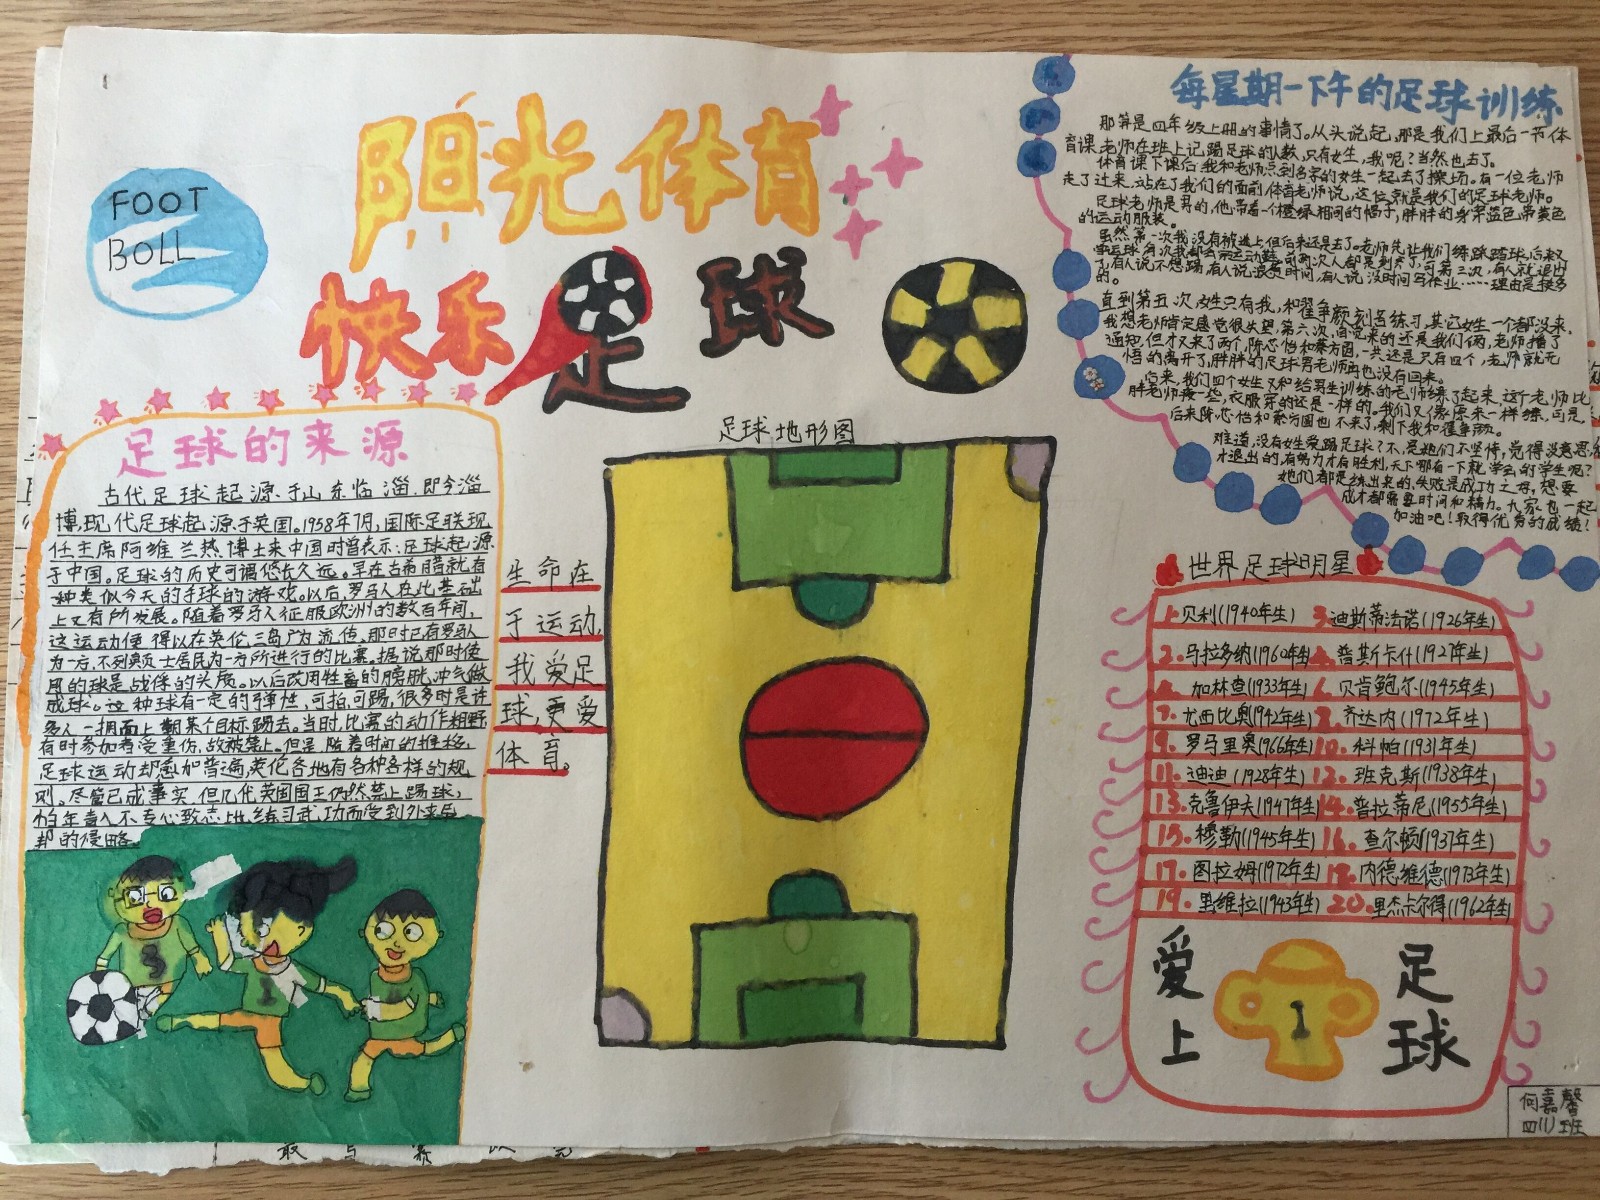 FOOT
BOLL
阳光体育
快乐足球
足球的来源
古代足球起源于山东临淄,即今淄
博,现代足球起源于英国。1958年7月,国际足联现
任主席阿维兰热博士来中国时曾表示:足球起源
于中国。足球的历史可谓悠长久远。早在古希腊就有
种类似今天的手球的游戏。以后,罗马人在此基础
上又有所发展。随着罗马人征服欧洲的数百年间,
这运动便得以在英伦三岛广为流传。那时已有罗马人
为一方,不列颠士居民为一方所进行的比赛。据说那时使
用的球是战俘的头颅。以后改用牲畜的膀胱冲气做
成球。这种球有一定的弹性,可拍可踢,很多时是许
多人一拥而上朝某个目标踢去。当时,比赛的动作粗野
有时参加者受重伤,故被禁止。但是,随着时间的推移,
足球运动却愈加普遍,英伦各地有各种各样的规
则。尽管已成事实,但几代英国国王仍然禁止踢球,
怕年青人不专心致志地练习武功而受到外来
邦的侵略。
生命在
于运动,
我爱足
球,更爱
体育。
足球地形图
3
1
每星期一下午的足球训练
那算是四年级上册的事情了。从头说起,那是我们上最后一节体
育课,老师在班上记踢足球的人数,只有女生,我呢?当然也去了。
体育课下课后,我和老师点到名字的女生一起去了操场。有一位老师
走了过来,站在了我们的面前,体育老师说,这位就是我们的足球老师。
足球老师是男的,他带着一个橙绿相间的帽子,胖胖的身穿蓝色带黄色
的运动服装。
虽然第一次我没有被选上,但后来还是去了。老师先让我们练踩踏球,后来又
学运球,每次我都会带运动鞋,前两次人都是到齐了,可第三次,有人就退出
了,有人说不想踢,有人说浪费时间,有人说没时间写作业……理由是挺多
的。
直到第五次,女生只有我,和翟争颜刻苦练习,其它女生一个都没来。
我想老师肯定感觉很失望,第六次,回回来的还是我们俩,老师播了
通知,但才又来了两个,陈芯怡和蔡方圆,一共还是只有四个,老师就无
悟的离开了,胖胖的足球男老师再也没有回来。
后来,我们四个女生又和给男生训练的老师练了起来,这个老师比
胖老师瘦一些,衣服穿的还是一样的。我们又像原来一样练,可是,
后来陈芯怡和蔡方圆也不来了,剩下我和翟争颜。
难道,没有女生爱踢足球?不,是她们不坚持,觉得没意思,
才退出的,有努力才有胜利,天下哪有一下就学会的学生呢?
她们都是练出来的,失败是成功之母,想要
成才都需要时间和精力。大家也一起
加油吧!取得优秀的成绩!
世界足球明星
1.贝利(1940年生) 3.迪斯蒂法诺(1926年生)
2.马拉多纳(1960年生) 普斯卡什(1927年生)
加林查(1933年生) 贝肯鲍尔(1945年生)
7.尤西比奥(1942年生) 8.齐达内(1972年生)
9.罗马里奥(1966年生) 10.科帕(1931年生)
11.迪迪(1928年生) 12.班克斯(1938年生)
13.克鲁伊夫(1947年生) 14.普拉蒂尼(1955年生)
15.穆勒(1945年生) 16.查尔顿(1937年生)
17.图拉姆(1972年生) 18.内德维德(1973年生)
19.里维拉(1943年生) 20.里杰卡尔得(1962年生)
爱上
1
足球
何嘉馨
四(1)班